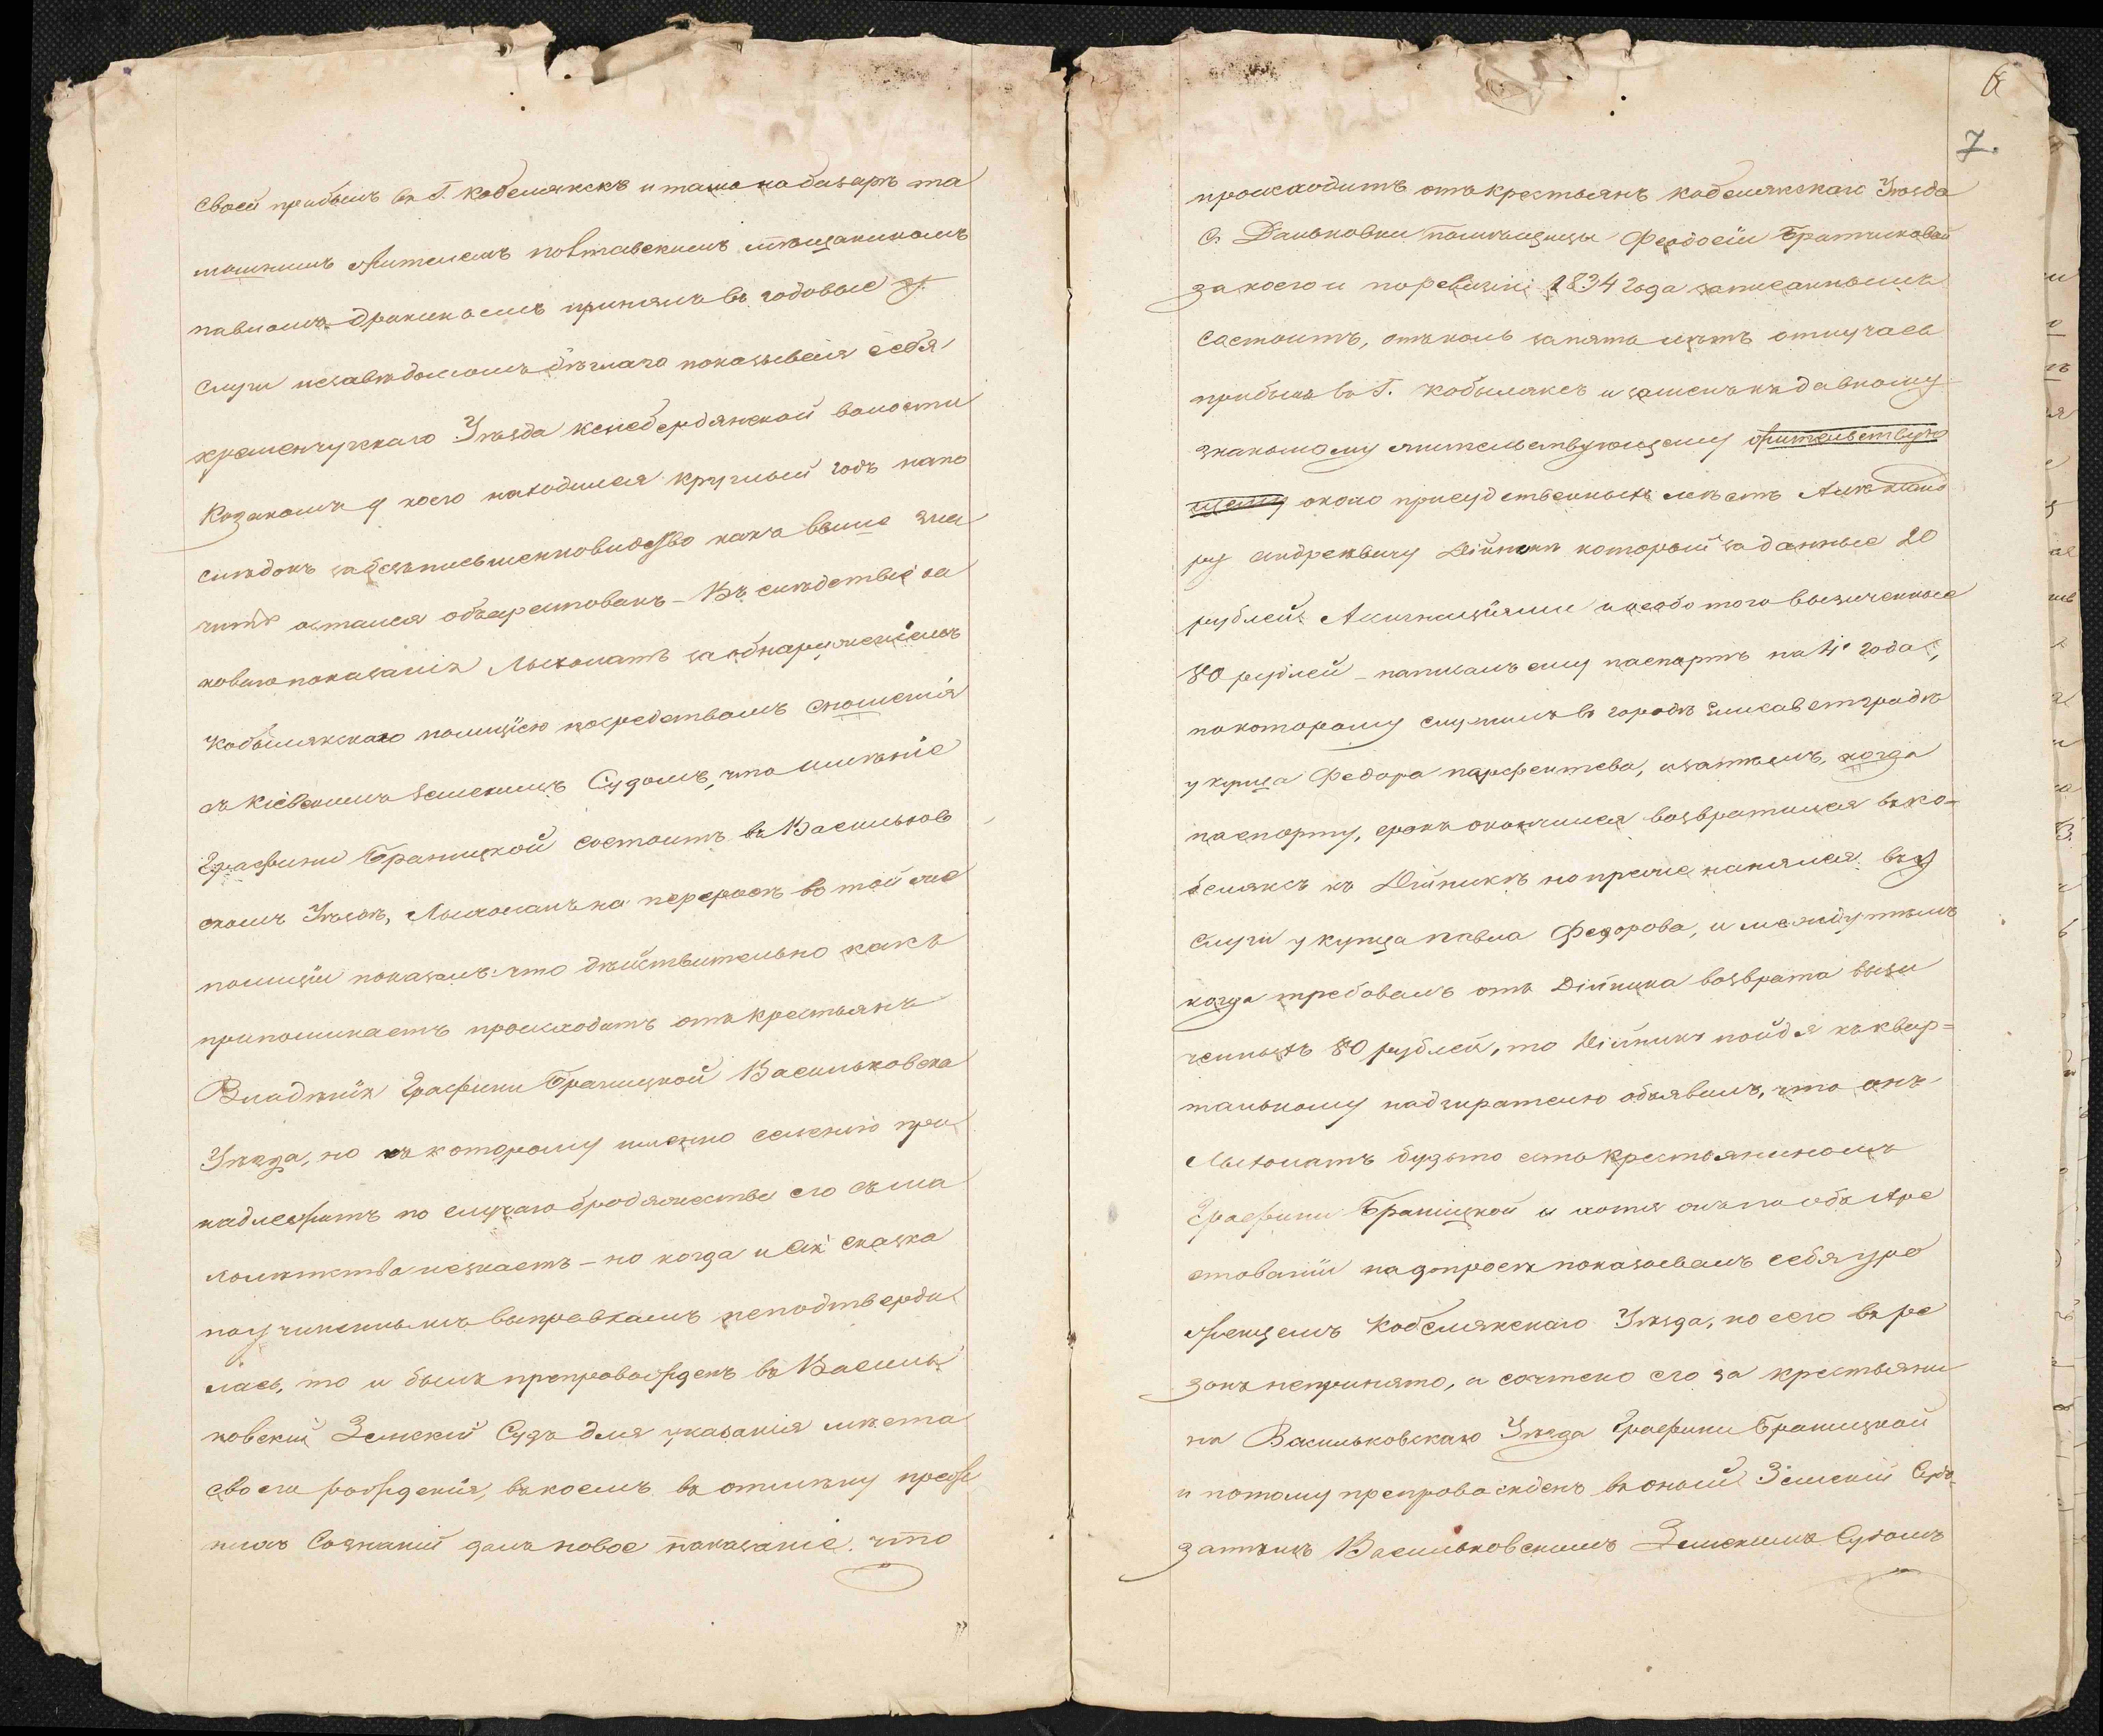 своей прибылъ въ Г. Кобелякскъ и тамо на базарѣ та
мошнимъ жителемъ полтавскимъ мѣщаниномъ
павломъ принялъ въ годовые
слуги незавѣдомомъ бѣглаго показывая себя
кременчугскаго Уѣзда келебердянской волости
Козакомъ у коего находился круглый годъ напо
слѣдокъ забезъписьменновидство какъ выше зна
читъ остался объарестованъ – Въ слѣдствіе та
коваго показанія Лысколатъ заобнаруженіемъ
Кобылякскаго полиціею посредствомъ сношенія
съ Кіевскимъ Земскимъ Судомъ, что имѣніе
Графини Браницкой состоитъ въ Васильков
скомъ Уѣздѣ, Лысколатъ на переросѣ въ той же
полиціи показалъ: что дѣйствительно какъ
припоминаетъ происходитъ отъ крестьянъ
Владѣнія Графини Браницкой Васильковска
Уѣзда, но къ которому именно селенію при
надлежитъ по случаю бродяжества его съ ма
лолѣтства незнаетъ – но когда и сія сказка
поучиненнымъ выправкамъ неподтверди
лась, то и былъ препровожденъ въ Василь
ковскій Земскій Судъ для указанія мѣста
своего рожденія, въ коемъ въ отмѣну преж
нихъ Сознаній далъ новое показаніе. что
7.
происходитъ отъ крестьянъ кобелякскаго Уѣзда
С. Даньковки помѣщицы Феодосіи Братчиковой
за коею и поревизіи 1834 года записаннымъ
состоитъ, отъколь запять лѣтъ отлучась
прибылъ въ Г. Кобылякъ и зашелъ къ давному
знакомому жительствующему жительствую
щему около присудственныхъ мѣстъ Алѣксанд
ру андреевичу Дійнекѣ который за данные 20
рублей Асигнаціями и особо того вызиченные
80 рублей – написалъ ему паспортъ на 4 года,
по которому служилъ въ городѣ Елисаветградѣ
у купца Федора парфентева, и затѣмъ, когда
паспорту, срокъ окончился возвратился въ ко-
белякъ къ Дійникѣ но преже нанялся въ
слуги у купца павла Федорова, и между тѣмъ
когда требовалъ отъ Дійника возврата вызи
ченныхъ 80 рублей, то Дійникъ пойдя къ квар=
тальному надзирателю объявилъ, что онъ
Лысколатъ будьто есть крестьяниномъ
Графини Браницкой и хотя онъ по объ Аре
стованіи надопросѣ показывалъ себя уро
женцемъ Кобелякскаго Уѣзда, но сего въ ре
зонъ непринято, а сочтено его за крестьяни
на Васильковскаго Уѣзда Графини Браницкой
и потому препровожденъ въ оный Земскій Судъ
затѣмъ Васильковскимъ Земскимъ Судомъ